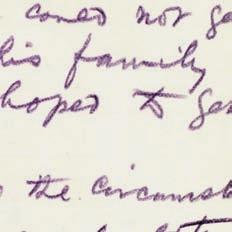 could not ge
his family
hoped to ge
the circumst